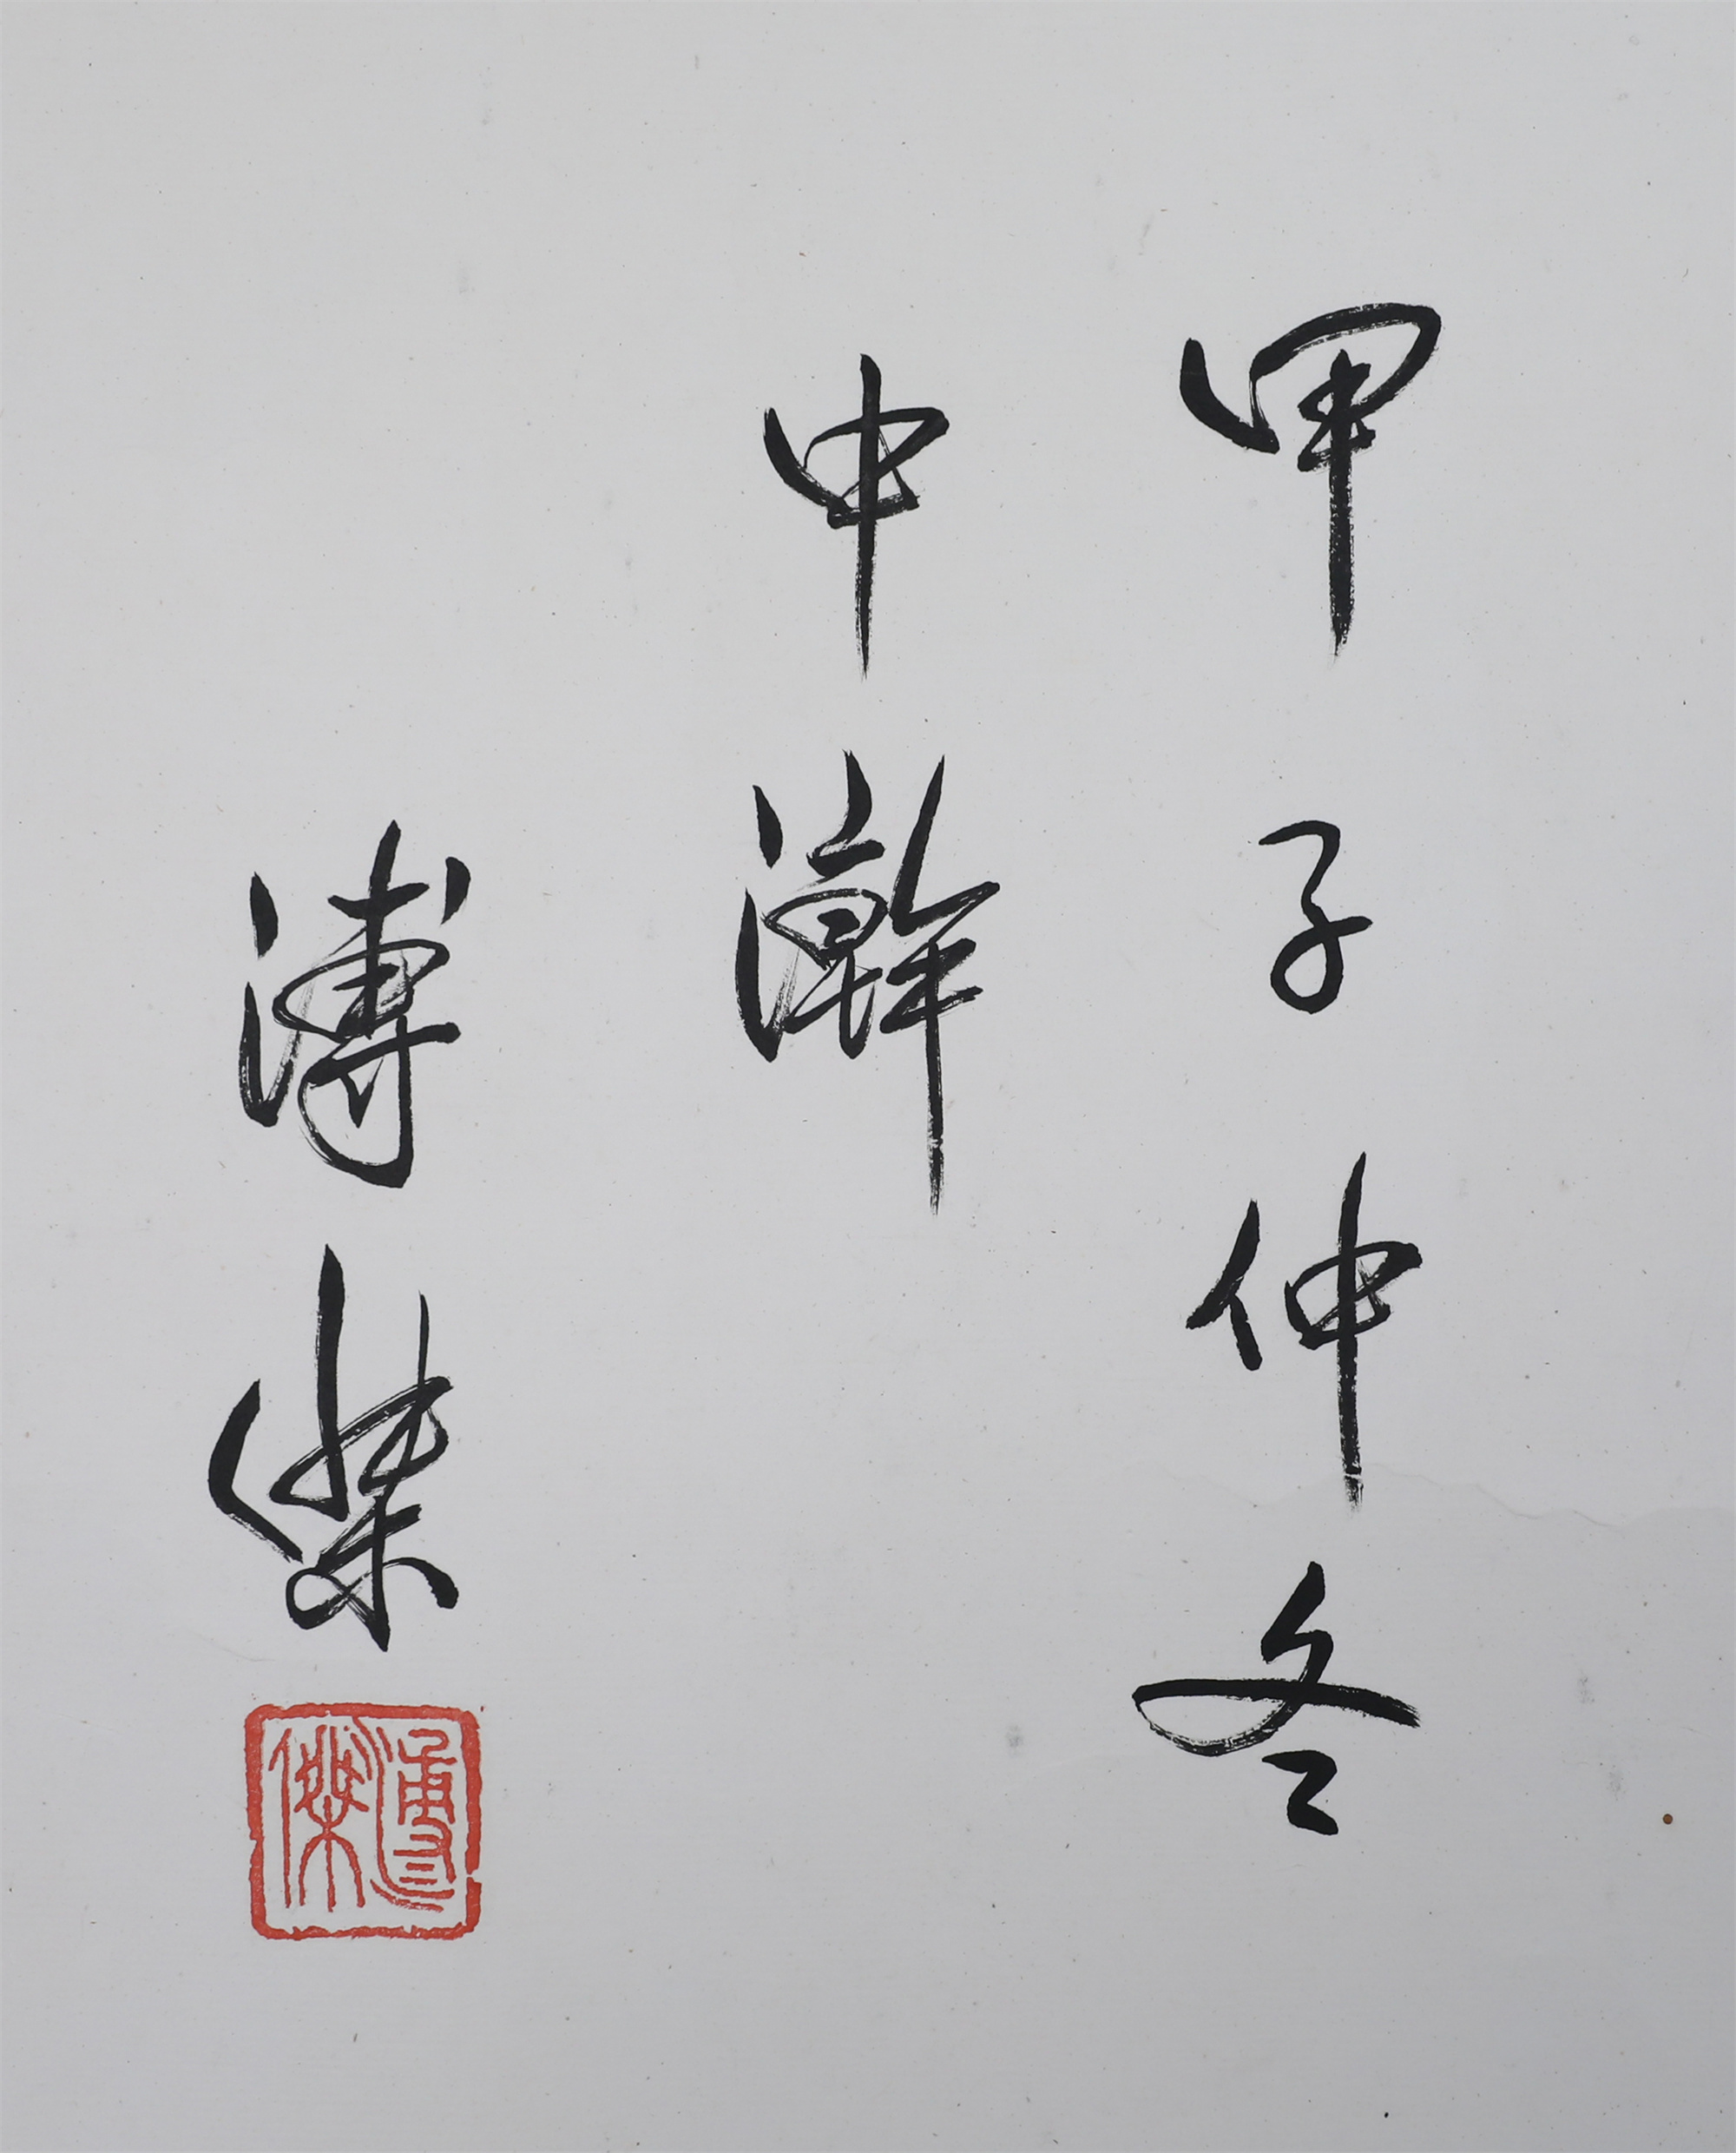 甲子仲冬
中澣
溥傑
溥傑